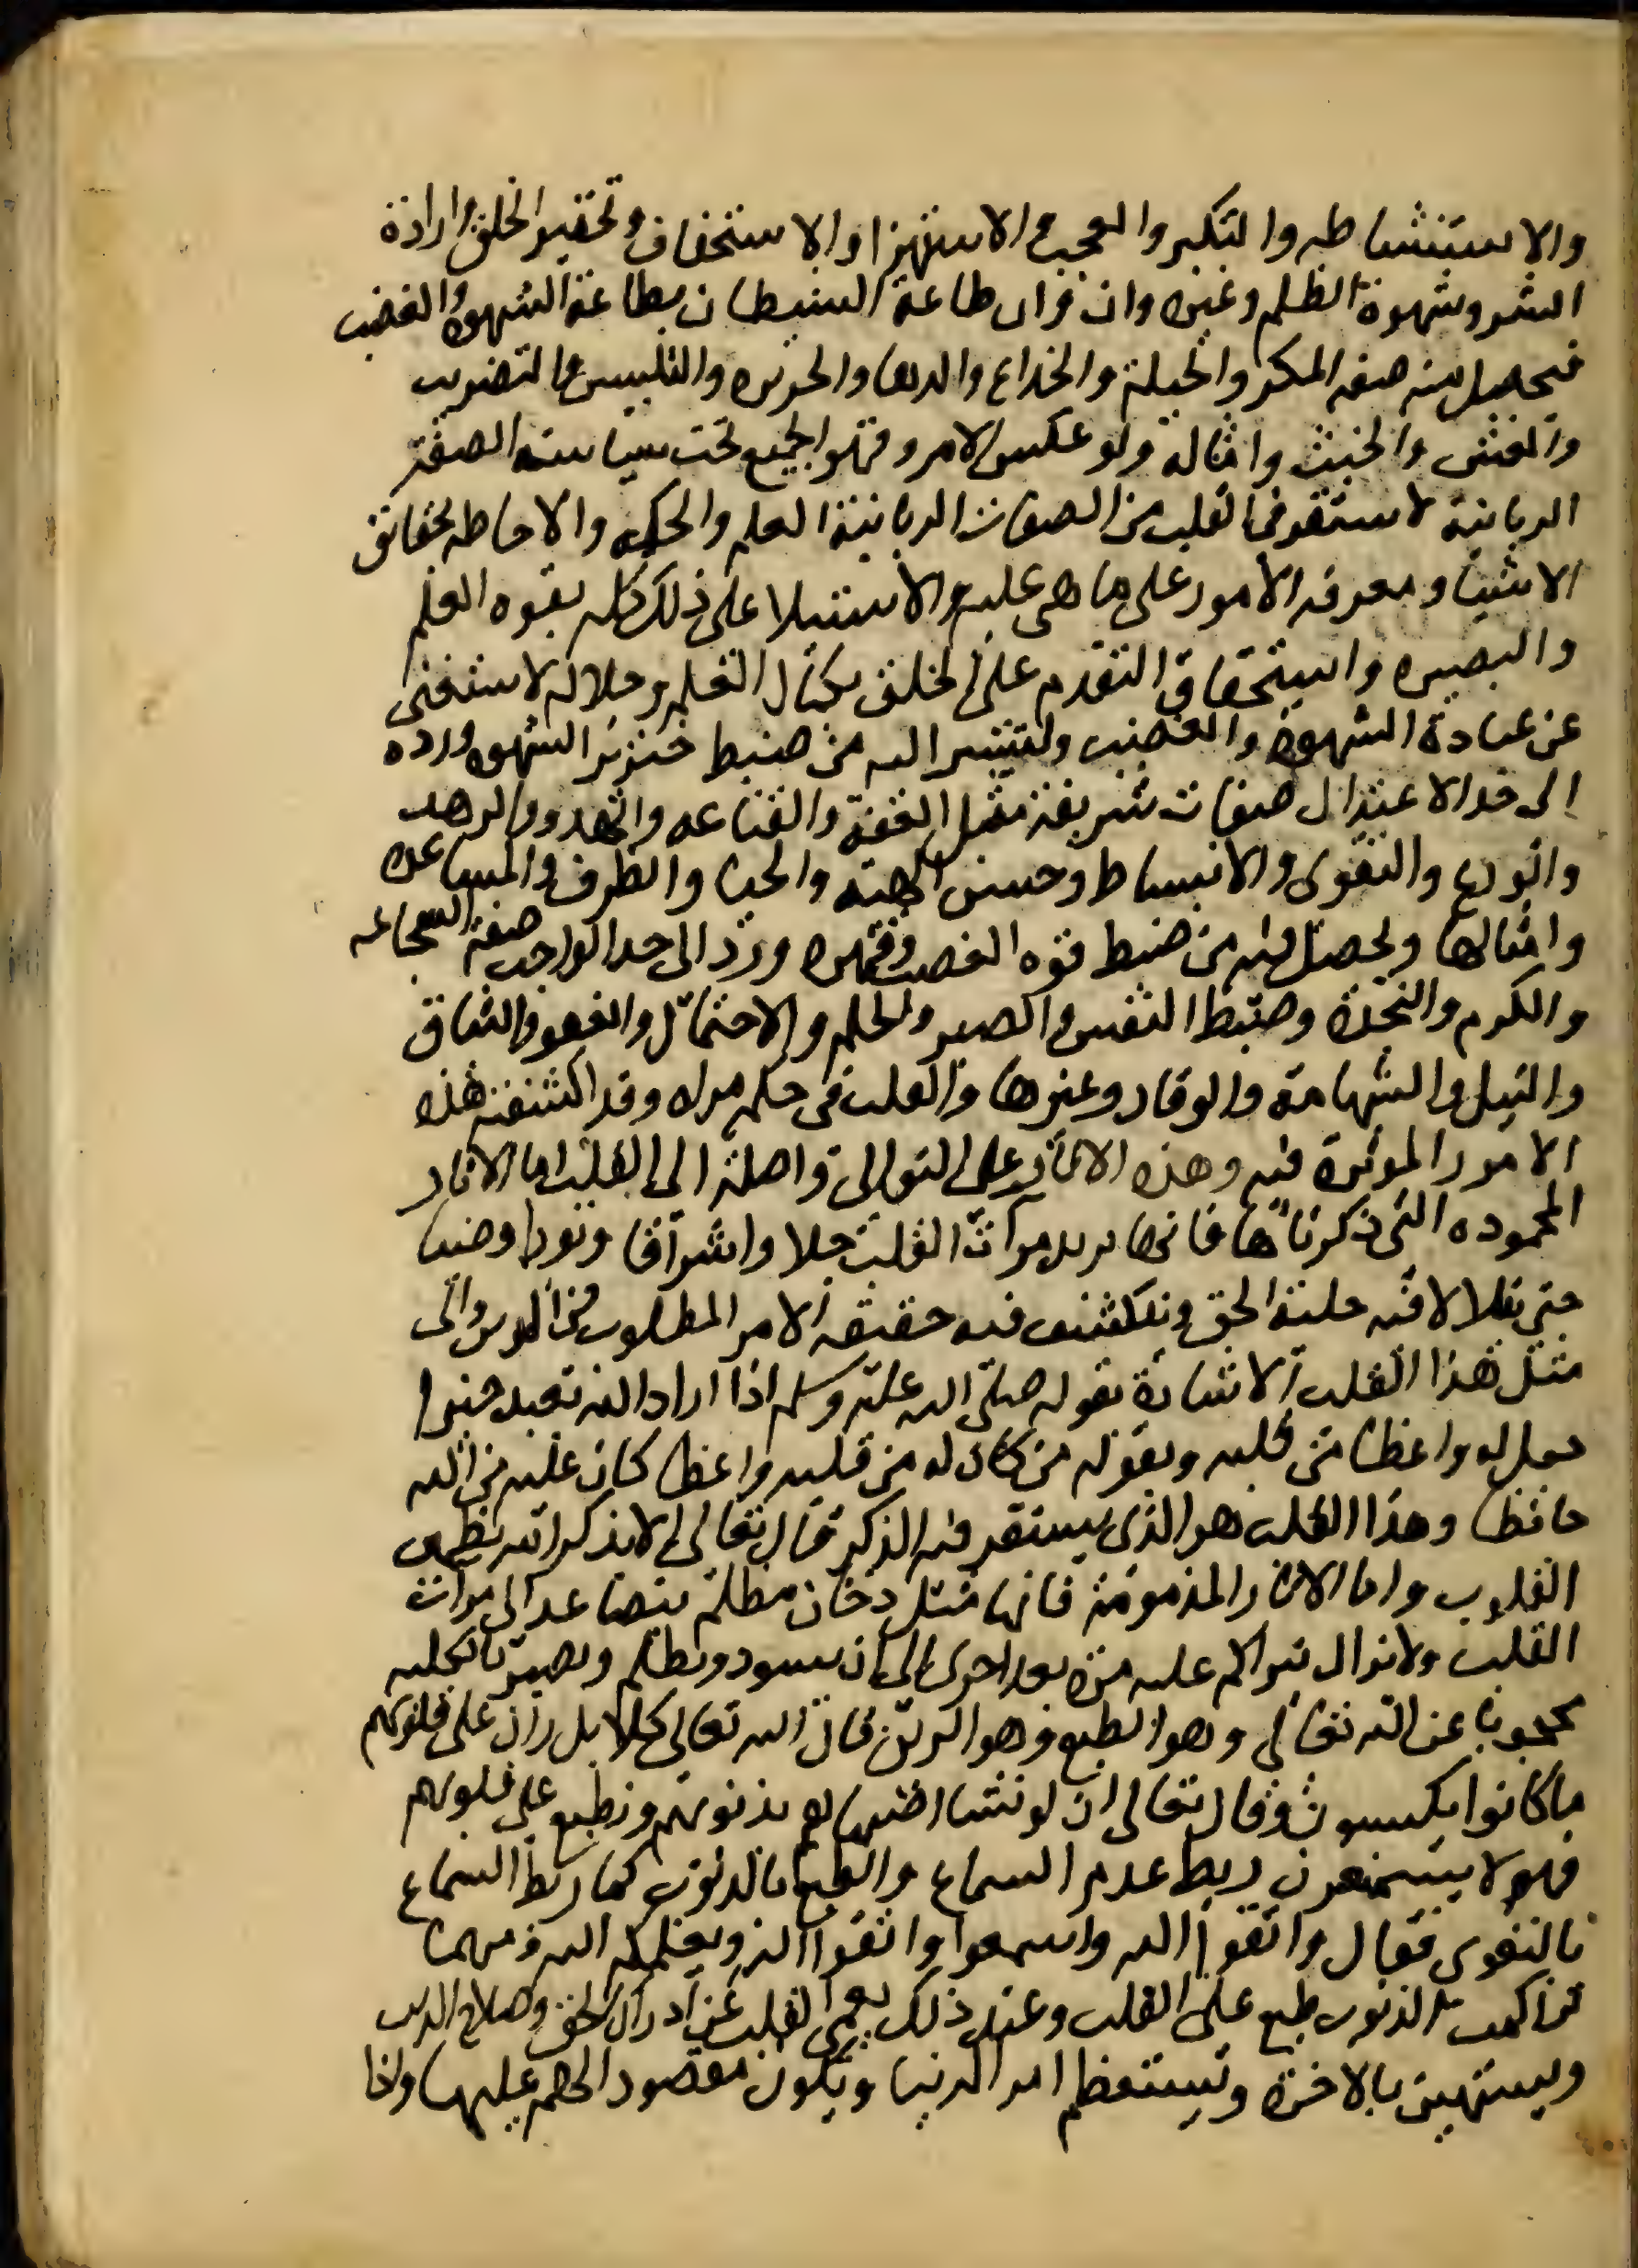 والاستشاطه والتكبر والعجب والاستهزا والاستخفاف وتحقير الخلق وارادة
الشر وشهوة الظلم وغيره وان طاعة الشيطان بطاعة الشهوه والغضب
فيحصل منه صفه المكر والحيلة والخداع والدها والجريره والتلبيس والتضريب
والغش والخبث وامثاله ولو عكس الامر وقهر الجميع تحت سياسته الصفة
الربانية لاستقر في القلب من الصفات الربانية العلم والحكمه والاحاطه بحقائق
الاشيا ومعرفه الامور على ما هى عليه والاستيلا على ذلك كله بقوه العلم
والبصيره واستحقاق التقدم على الخلق بكمال العلم وجلاله لاستغنى
عن عبادة الشهوة والغضب ولتيسر اليه من ضبط خنزير الشهوه ورده
الى حد الاعتدال صفات شريفة مثل العفة والقناعه والهدو والزهد
والورع والتقوى والانبساط وحسن الهيئه والحيا والظرف والمساعده
وامثالها ويحصل فيه من ضبط قوه الغضب وقهره ورد الى حد الواجب صفة الشجاعه
والكرم والنجده وضبط النفس والصبر والحلم والاحتمال والعفو والثبات
والنبل والشهامة والوقار وغيرها والقلب في حكم مراه وقد اكتنفته هذه
الامور المؤثرة فيه وهذه الاثار على التوالى واصلة الى القلب اما الاثار
المحموده التى ذكرناها فانها تزيد مرآت القلب جلا واشراقا ونورا وضيا
حتى يتلالا فيه جلية الحق وينكشف فيه حقيقه الامر المطلوب في الدين والى
مثل هذا القلب الاشارة بقوله صلى الله عليه وسلم اذا اراد الله بعبد خيرا
جعل له واعظا من قلبه وبقوله من كان له من قلبه واعظ كان عليه من الله
حافظا وهذا القلب هو الذى يستقر فيه الذكر قال تعالى الا بذكر الله تطمين
القلوب واما الاثار المذمومة فانها مثل دخان مظلم يتصاعد الى مرآت
القلب ولا تزال يتراكم عليه مره بعد اخرى الى ان يسود ويظلم ويصير بالكليه
محجوبا عن الله تعالى وهو الطبع وهو الرين قال الله تعالى كلا بل ران على قلوبهم
ما كانوا يكسبون وقال تعالى ان لو نشا اصبناهم بذنوبهم ونطبع على قلوبهم
فهم لا يسمعون ربط عدم السماع والطبع بالذنوب كما ربط السماع
بالتقوى فقال واتقوا الله واسمعوا واتقوا الله ويعلمكم الله ومهما
تراكمت الذنوب طبع على القلب وعند ذلك يعمى القلب عن ادراك الحق وصلاح الدين
ويستهين بالاخرة ويستعظم امر الدنيا ويكون مقصود الهم عليها واذا